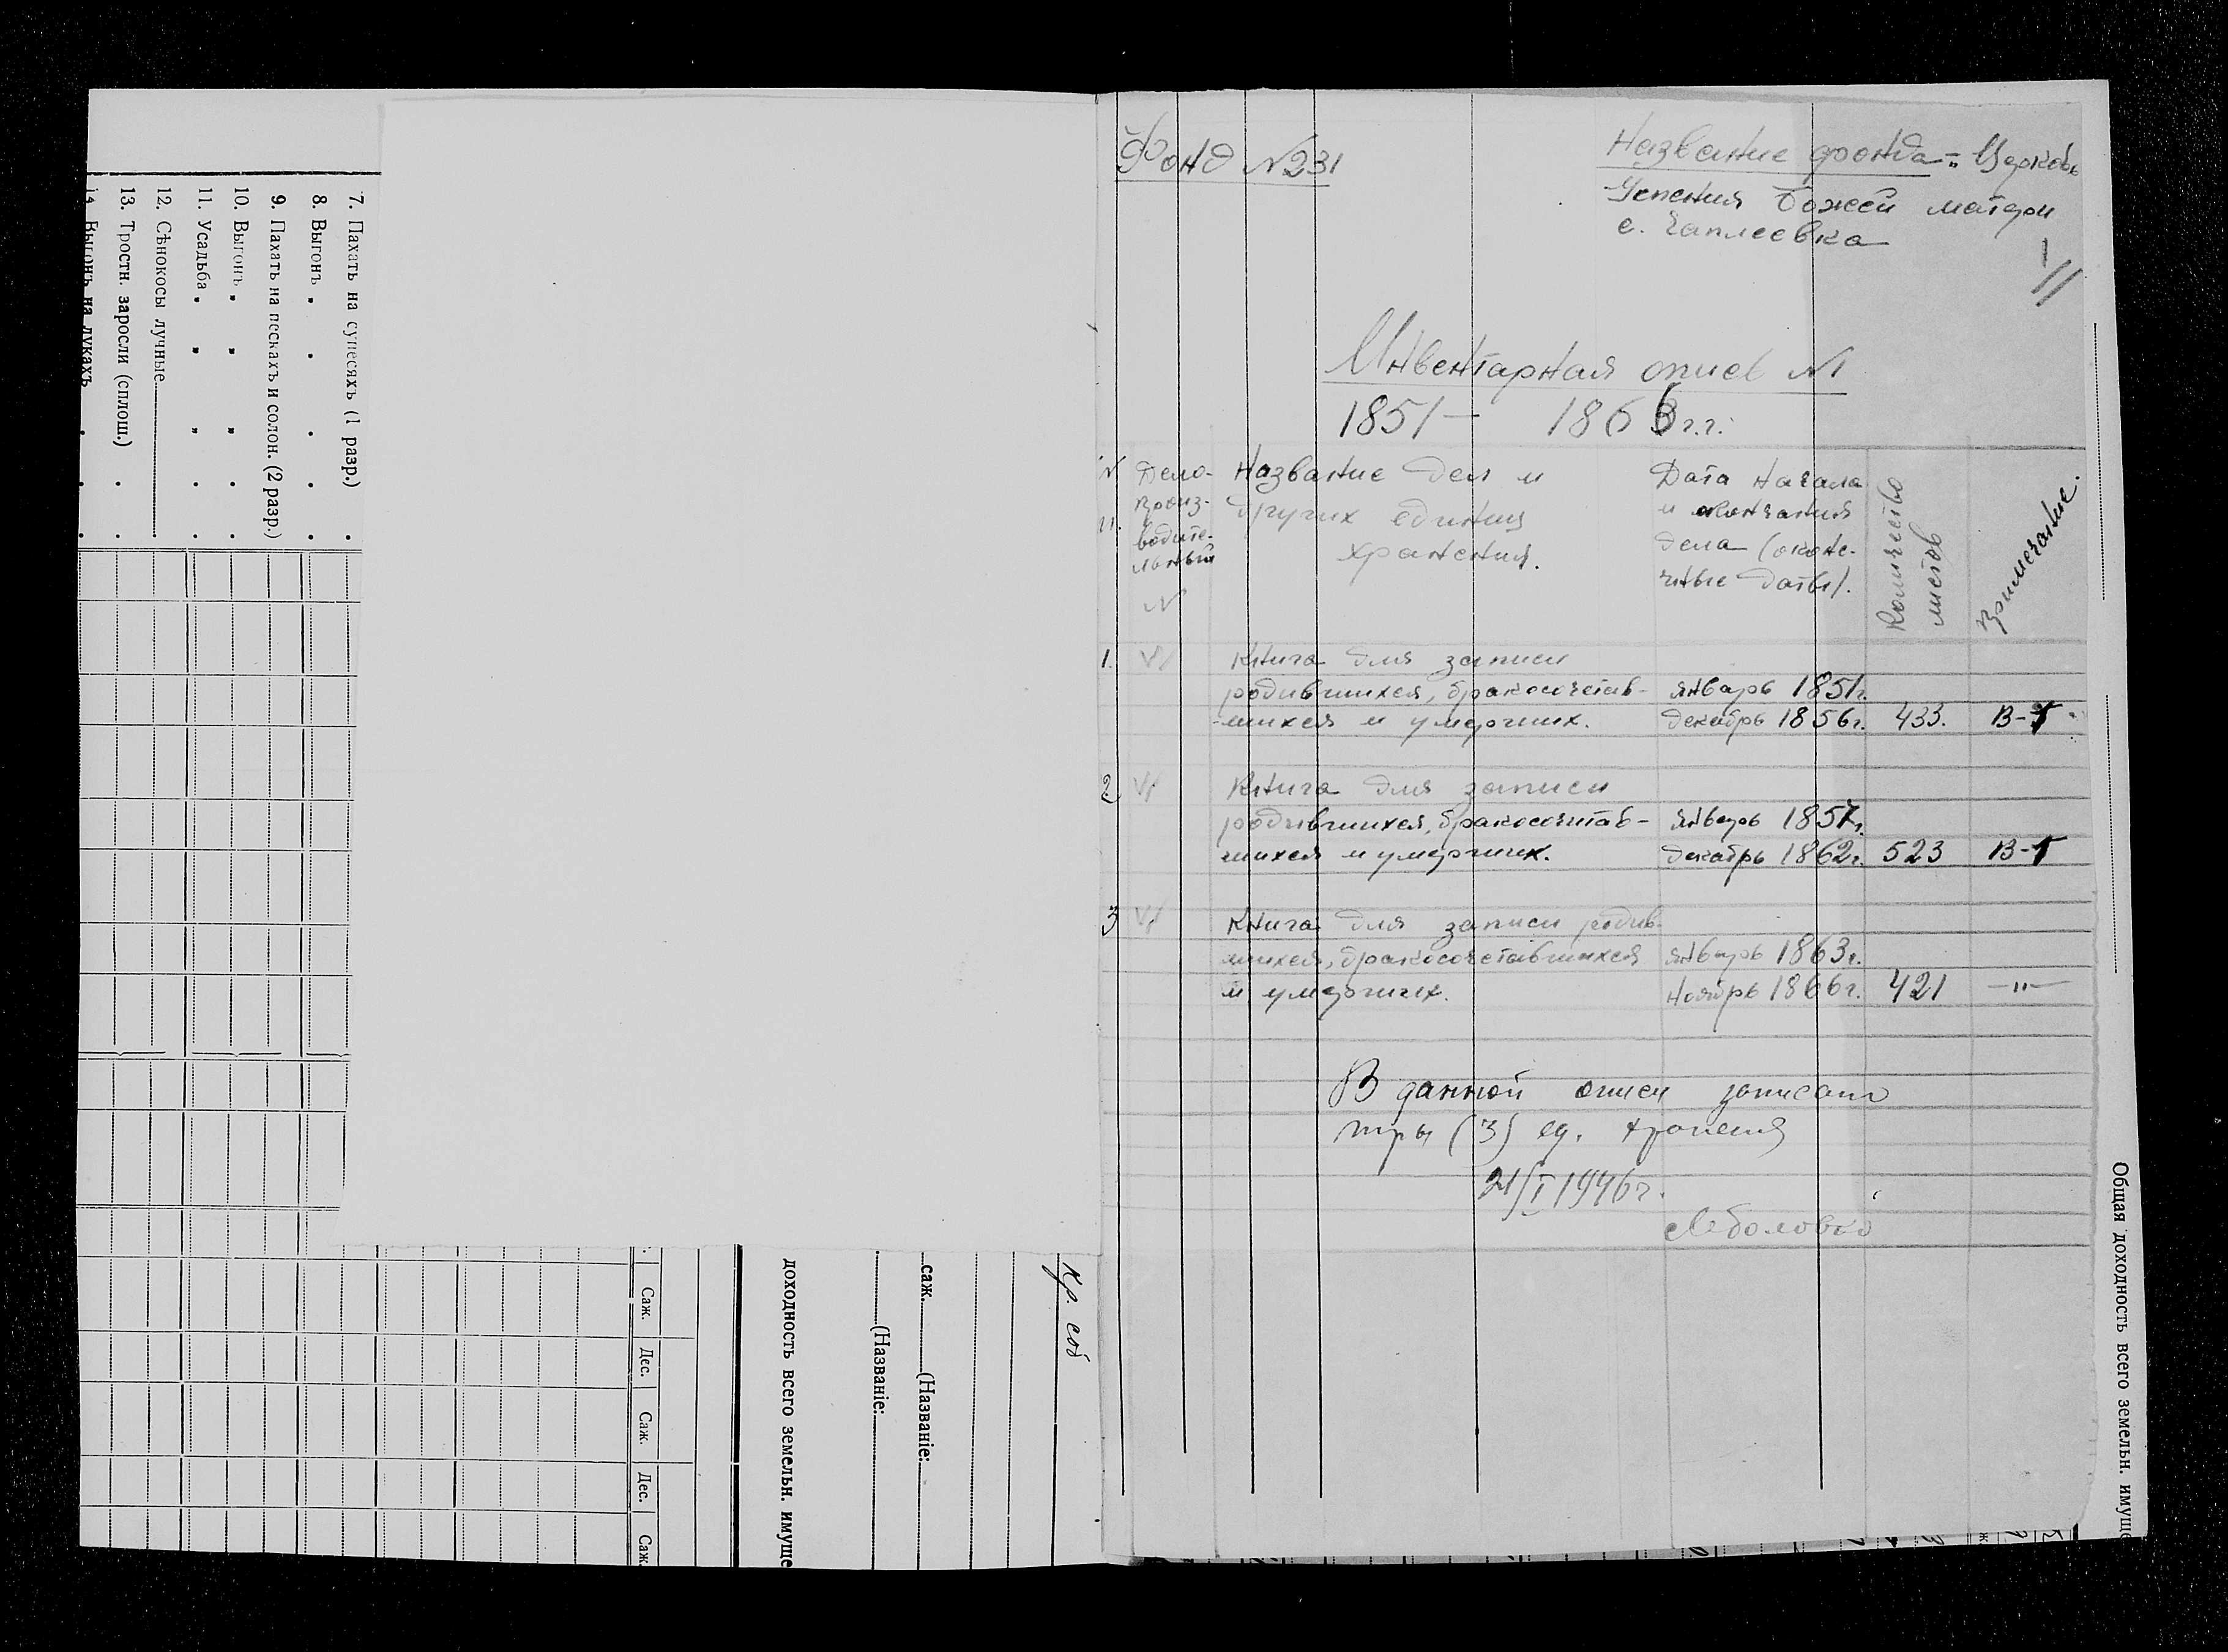 7. Пахать на супесяхъ (1 разр.)
8. Выгонъ
9. Пахать на пескахъ и солон. (2 разр.)
10. Выгонъ
11. Усадьба
12. Сѣнокосы лучные
13. Тростн. заросли (сплош.)
14. Выгонъ на лукахъ
Саж. Дес. Саж. Дес. Саж.
доходность всего земельн. имуще
(Названіе:
саж. (Названіе:
Фонд №231
Название фонда - Церковь
Успения Божей матери
с. Чаплеевка
Инвентарная опись №1
1851 - 1866 г.г.
№ Дело- Название дел и Дата начала Количество Примечание.
п. произ- других единиц и окончания листов
водите- хранения. дела (оконе-
льный чные даты).
№
1. Книга для записи
родившихся, бракосочетав- январь 1851г.
-шихся и умерших. декабрь 1856г. 433. В-1
2 Книга для записи
родившихся, бракосочетав- январь 1857г.
шихся и умерших. декабрь 1862г. 523 В-1
3 Книга для записи родив-
шихся, бракосочетавшихся январь 1863г.
и умерших. Ноябрь 1866г. 421 —"—
В данной описи записано
три (3) ед. хранения
21/I 1946г.
Общая доходность всего земельн. имуще